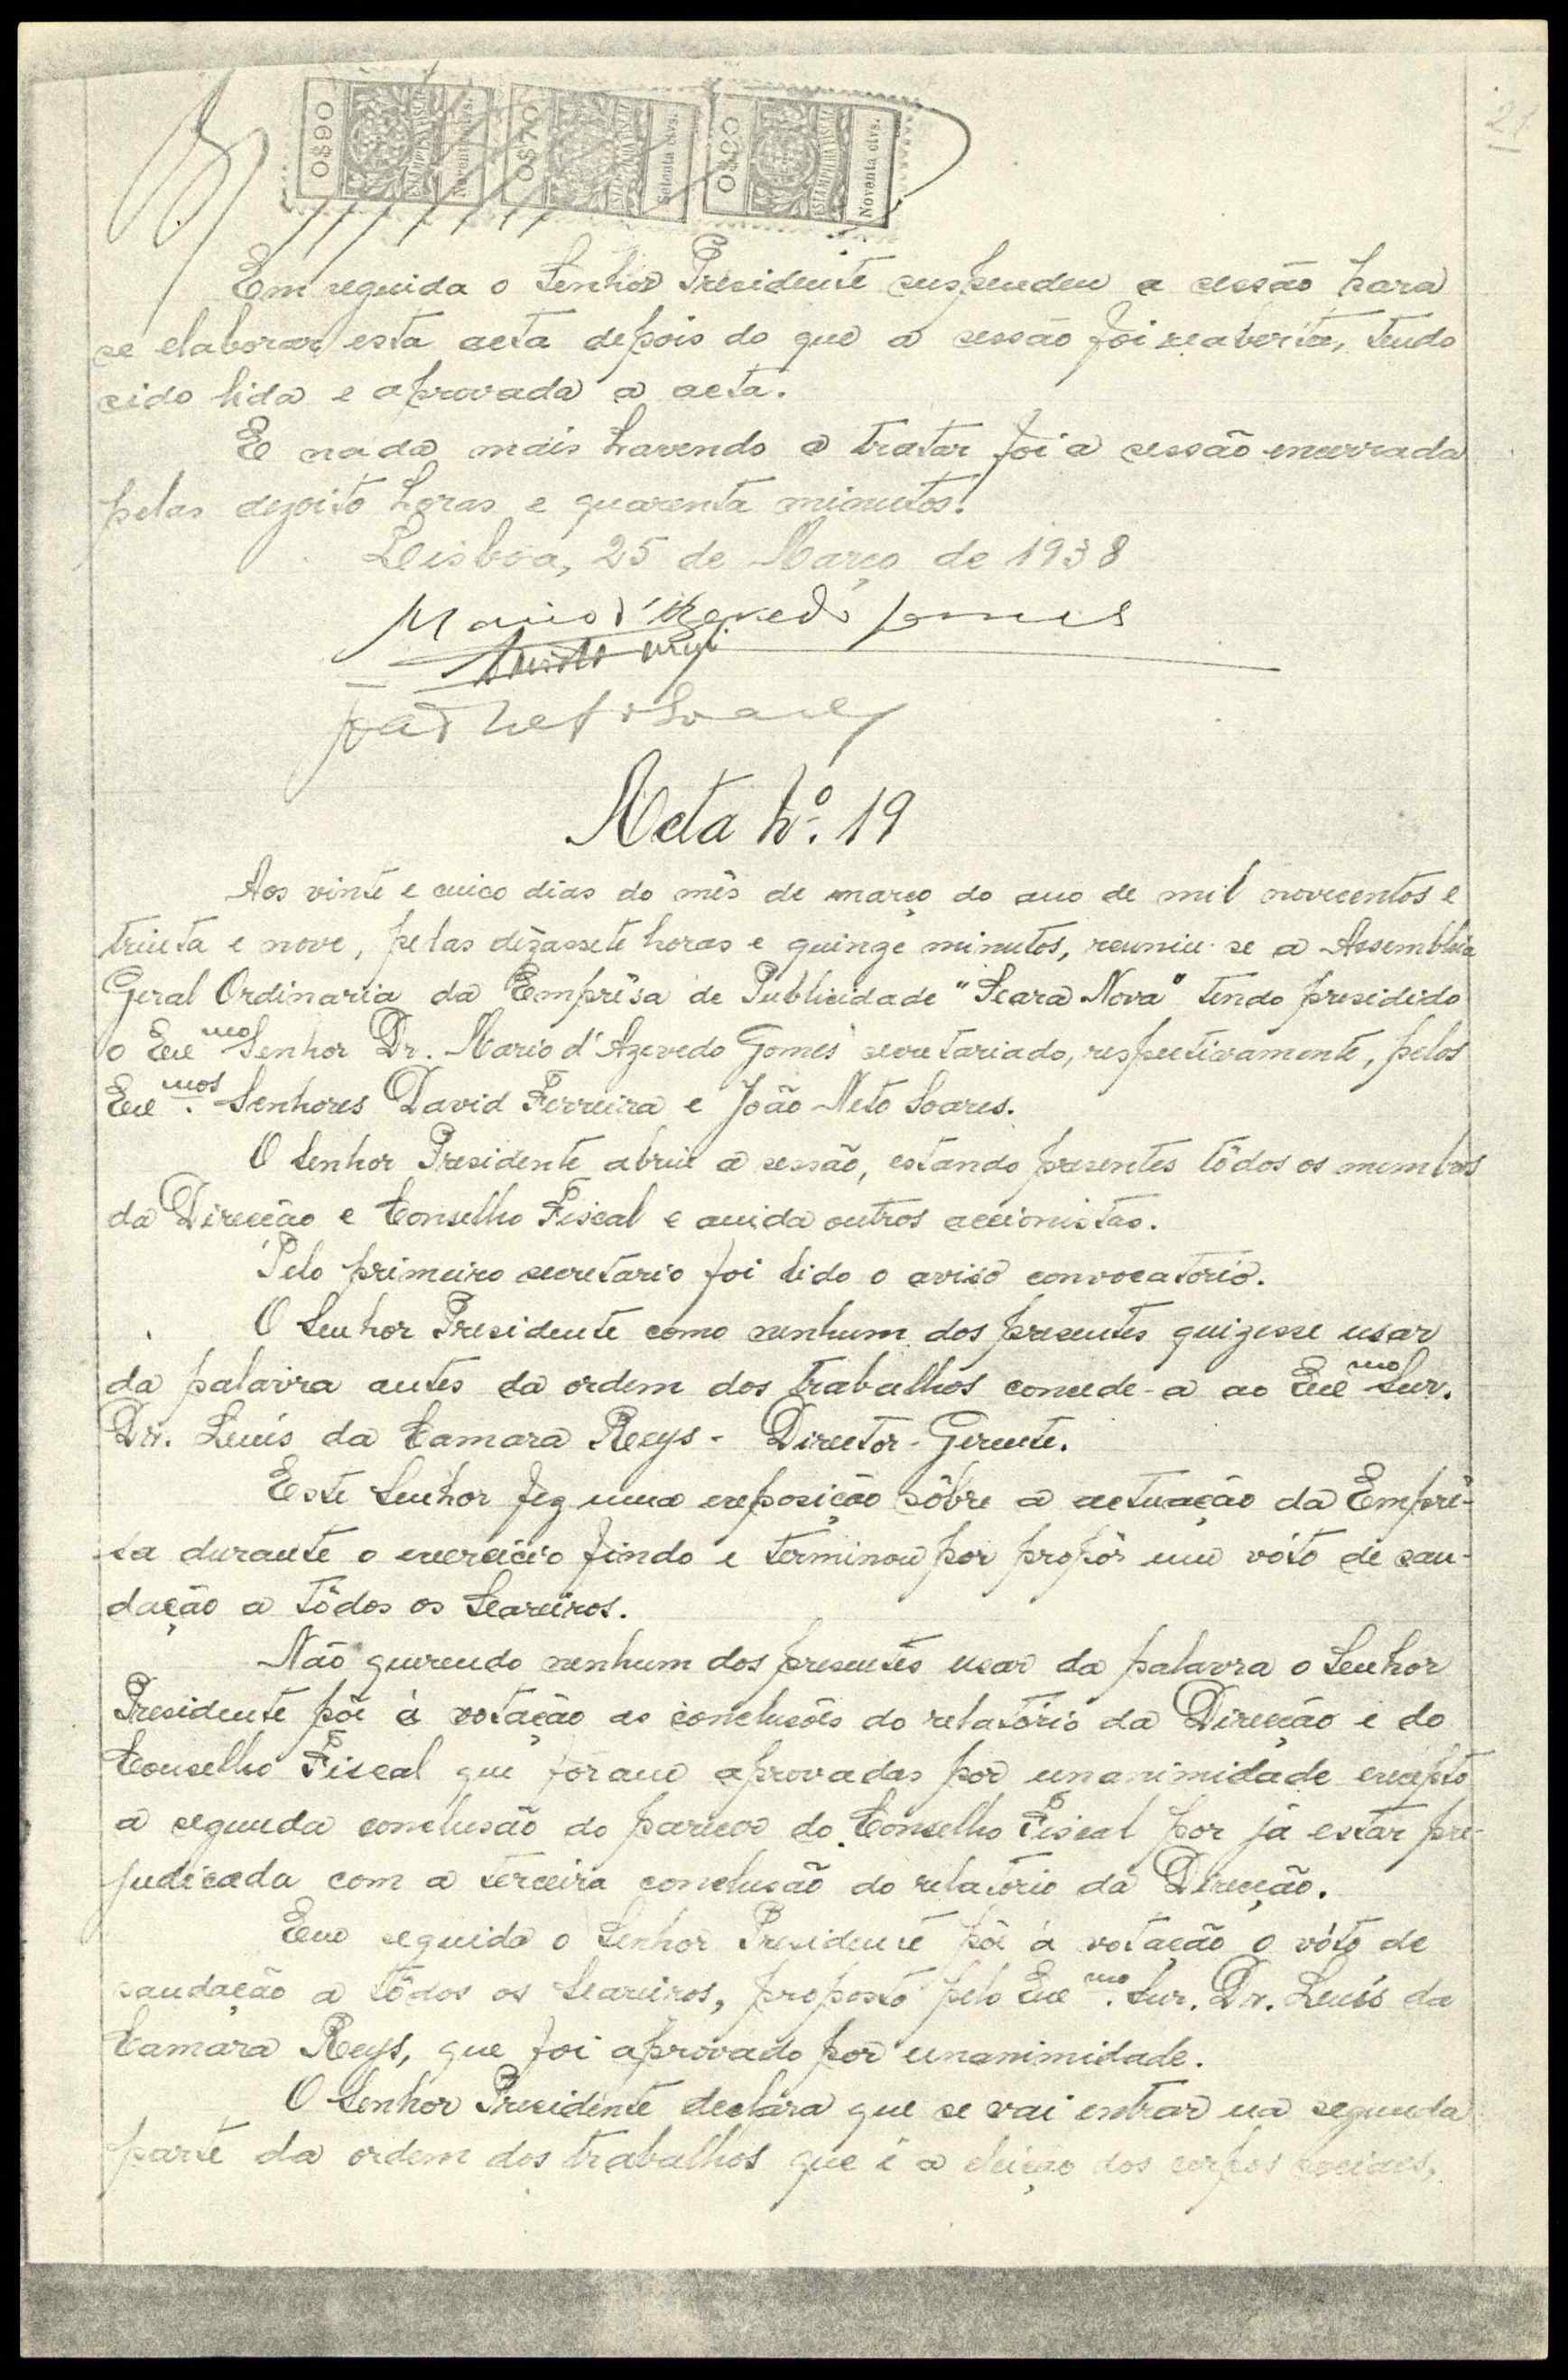 21
0$90 ESTAMPILHA FISCAL Noventa ctvs.
0$70 ESTAMPILHA FISCAL Setenta ctvs.
0$90 ESTAMPILHA FISCAL Noventa ctvs.
Em seguida o Senhor Presidente suspendeu a sessão para
se elaborar esta acta depois do que a sessão foi reaberta, tendo
sido lida e aprovada a acta.
E nada mais havendo a tratar foi a sessão encerrada
pelas dezoito horas e quarenta minutos.
Lisboa, 25 de Março de 1938
Mario d'Azevedo Gomes
João Neto Soares
Acta Nº. 19
Aos vinte e cinco dias do mês de março do ano de mil novecentos e
trinta e nove, pelas dezassete horas e quinze minutos, reuniu-se a Assembleia
Geral Ordinaria da Emprêsa de Publicidade "Seara Nova" tendo presidido
o Exmo Senhor Dr. Mario d'Azevedo Gomes secretariado, respectivamente, pelos
Exmos. Senhores David Ferreira e João Neto Soares.
O Senhor Presidente abriu a sessão, estando presentes tôdos os membros
da Direcção e Conselho Fiscal e ainda outros accionistas.
Pelo primeiro secretario foi lido o aviso convocatorio.
O Senhor Presidente como nenhum dos presentes quizesse usar
da palavra antes da ordem dos trabalhos concede-a ao Exmo Snr.
Dr. Luís da Camara Reys - Director-Gerente.
Este Senhor fez uma exposição sôbre a actuação da Emprê-
sa durante o exercicio findo e terminou por propôr um vóto de sau-
dação a tôdos os Seareiros.
Não querendo nenhum dos presentes usar da palavra o Senhor
Presidente põe á votação as conclusões do relatório da Direcção e do
Conselho Fiscal que fôram aprovadas por unanimidade excepto
a segunda conclusão do parecer do Conselho Fiscal por já estar pre-
judicada com a terceira conclusão do relatório da Direcção.
Em seguida o Senhor Presidente põe á votação o vóto de
saudação a tôdos os Seareiros, proposto pelo Exmo. Snr. Dr. Luís da
Camara Reys, que foi aprovado por unanimidade.
O Senhor Presidente declára que se vai entrar na segunda
parte da ordem dos trabalhos que é a eleição dos corpos sociaes,